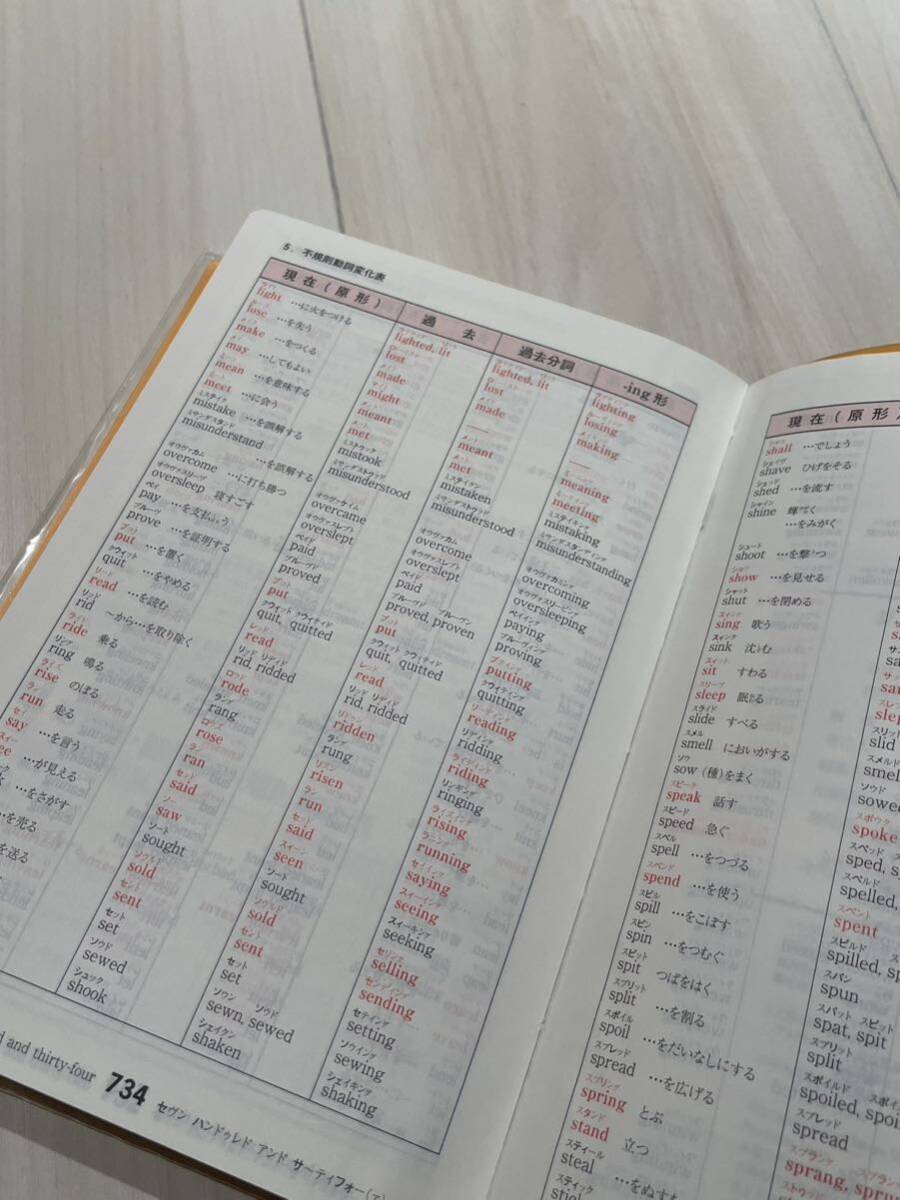 5. 不規則動詞変化表
現在(原形) 過去 過去分詞 -ing形
light …に火をつける lighted, lit lighted, lit lighting
lose …を失う lost lost losing
make …をつくる made made making
may …してもよい might —— ——
mean …を意味する meant meant meaning
meet …に会う met met meeting
mistake …を誤解する mistook mistaken mistaking
misunderstand …を誤解する misunderstood misunderstood misunderstanding
overcome …に打ち勝つ overcame overcome overcoming
oversleep 寝すごす overslept overslept oversleeping
pay …を支払う paid paid paying
prove …を証明する proved proved, proven proving
put …を置く put put putting
quit …をやめる quit, quitted quit, quitted quitting
read …を読む read read reading
rid ～から…を取り除く rid, ridded rid, ridded ridding
ride 乗る rode ridden riding
ring 鳴る rang rung ringing
rise のぼる rose risen rising
run 走る ran run running
say …を言う said said saying
…が見える saw seen seeing
…をさがす sought sought seeking
…を売る sold sold selling
を送る sent sent sending
set set setting
sewed sewn, sewed sewing
shook shaken shaking
and thirty-four 734 セヴン ハンドゥレド アンド サーティフォー
現在(原形)
shall …でしょう
shave ひげをそる
shed …を流す
shine 輝く
…をみがく
shoot …を撃つ
show …を見せる
shut …を閉める
sing 歌う
sink 沈む
sit すわる
sleep 眠る
slide すべる slid
smell においがする smell
sow (種)をまく sowed
speak 話す spoke
speed 急ぐ sped,
spell …をつづる spelled,
spend …を使う spent
spill …をこぼす spilled,
spin …をつむぐ spun
spit つばをはく spat, spit
split …を割る split
spoil …をだいなしにする spoiled,
spread …を広げる spread
spring とぶ sprang,
stand 立つ
steal …をぬす